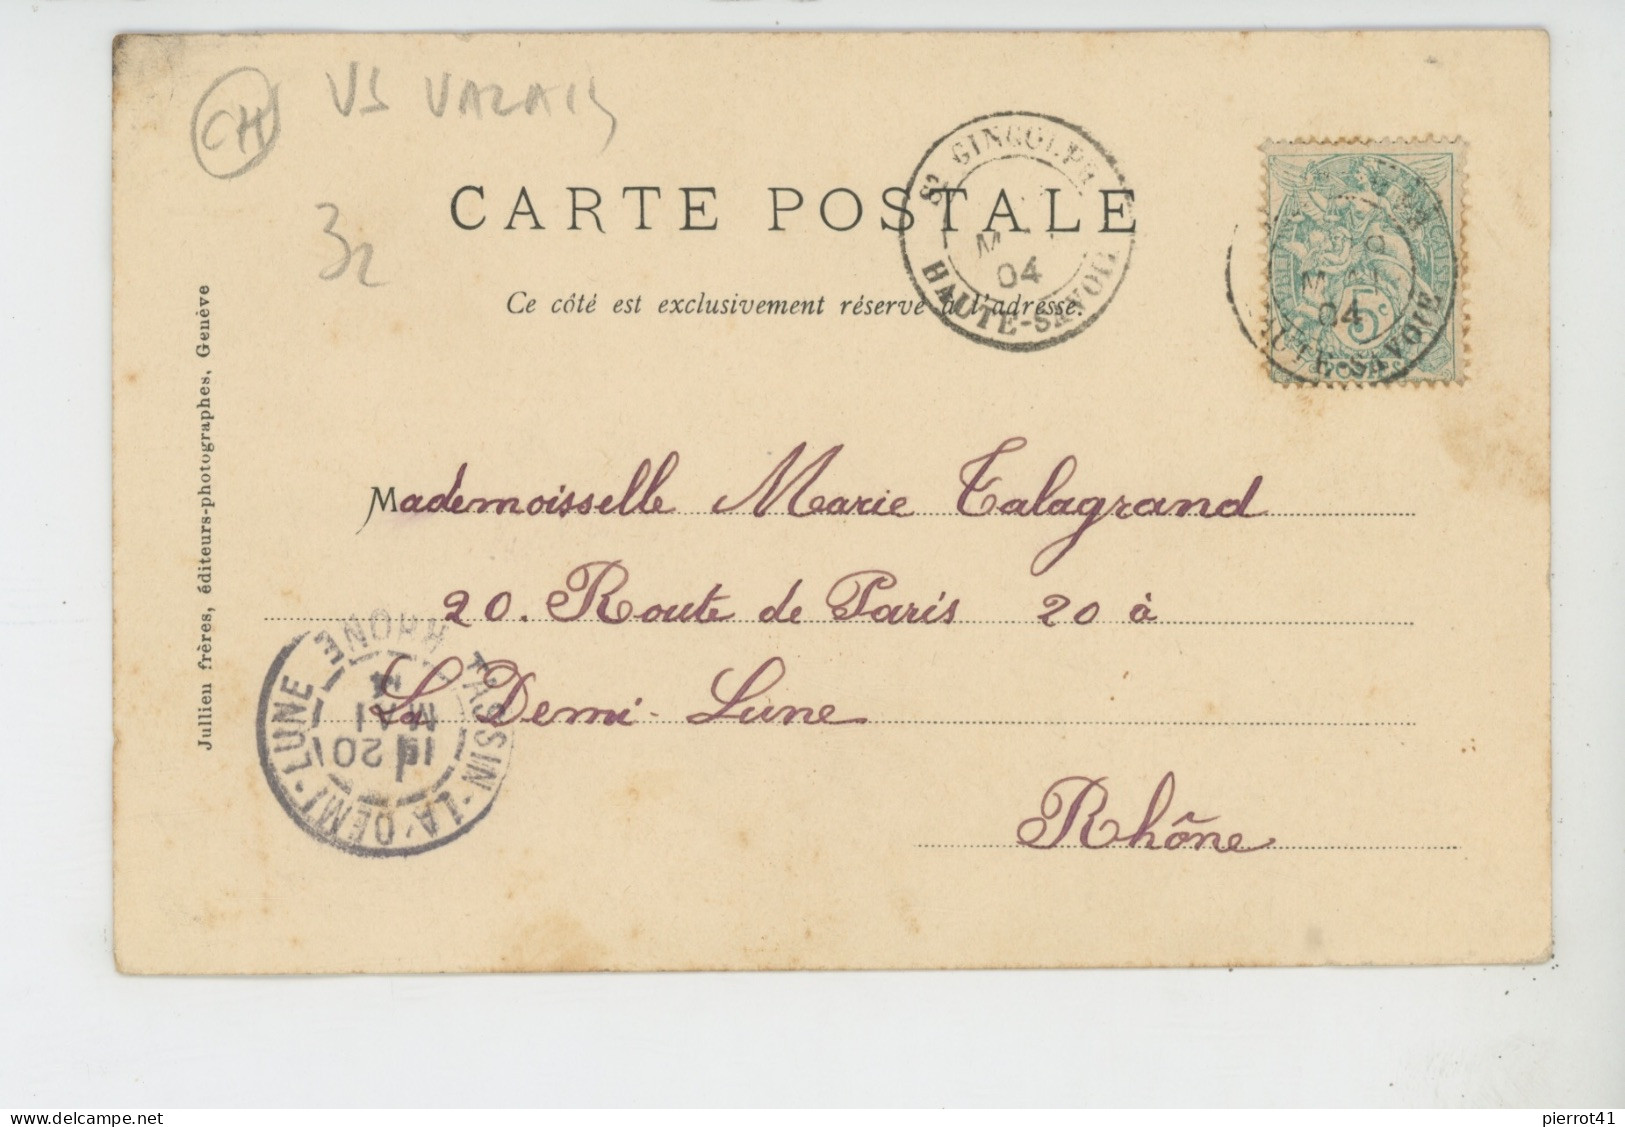 CH VS VALAIS
CARTE POSTALE
32
Ce côté est exclusivement réservé à l'adresse.
St GINGOLPH
MAI
04
HAUTE-SAVOIE
MAI
04
HAUTE-SAVOIE
5c
POSTES
Mademoisselle Marie Talagrand
20. Route de Paris 20 à
La Demi-Lune
Rhône
TASSIN-LA-DEMI-LUNE
RHÔNE
MAI
Jullien frères, éditeurs-photographes, Genève
pierrot41